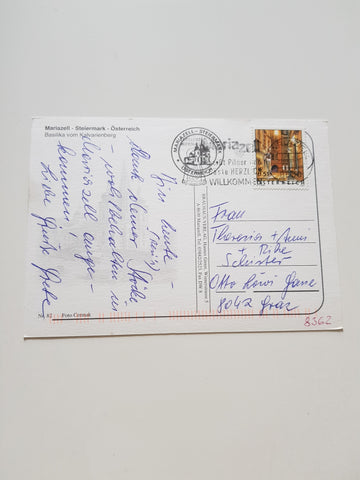 Mariazell - Steiermark - Österreich
Basilika vom Kalvarienberg
Bin heute -
dank deiner Stöcke
- wohlbehalten in
Mariazell ange-
kommen!
Liebe Grüße Grete
Nr. 82 Foto Czermak
MARIAZELL - STEIERMARK
WILLKOMMEN
ÖSTERREICH
Frau
Theresia + Anni
+ Rike
Schuster
Otto Löwi Gasse
8042 Graz
8362